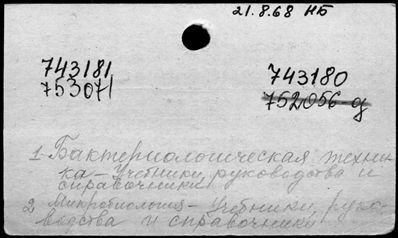 21.8.68 НБ
743181 743180
753071 752056-д
1 Бактериологическая техни-
ка - Учебники, руководства и
справочники
2 Микробиология - Учебники, руко-
водства и справочники